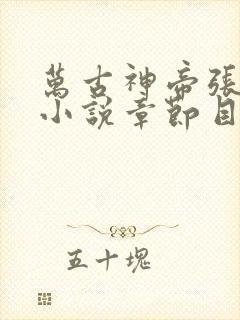 萬古神帝張
小說章節目
五十塊